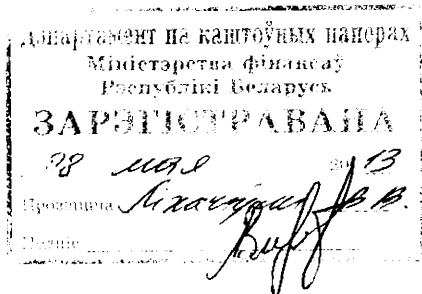 Дэпартамент па каштоўных паперах
Міністэрства фінансаў
Рэспублікі Беларусь
ЗАРЭГІСТРАВАНА
08 мая 2013
Прозвішча В. В.
Подпіс